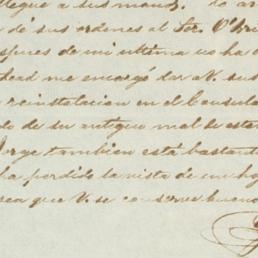 llegue a sus manos. lo an
de sus ordenes al Sor. O'Bri
spues de mi ultima no ha o
head me encargó dar a V. sus
reinstalacion en el Consula
do de su antiguo mal de esto
Jorge tambien está bastant
ha perdido la vista de un oj
sea que V. se conserve bueno